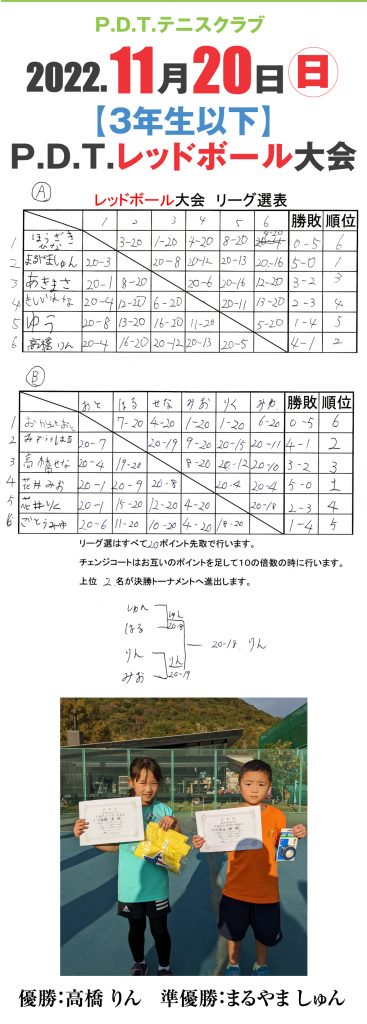 P.D.T.テニスクラブ
2022.11月20日日
【3年生以下】
P.D.T.レッドボール大会
A
レッドボール大会 リーグ選表
1 2 3 4 5 6 勝敗 順位
1 3-20 1-20 4-20 8-20 0-5 6
2 まるやましゅん 20-3 20-8 20-12 20-13 20-16 5-0 1
3 あきまさ 20-1 8-20 20-6 20-16 12-20 3-2 3
4 20-4 12-20 6-20 20-11 13-20 2-3 4
5 ゆう 20-8 13-20 16-20 11-20 5-20 1-4 5
6 高橋りん 20-4 16-20 20-12 20-13 20-5 4-1 2
B
おと はる せな みお りく みゆ 勝敗 順位
1 7-20 4-20 1-20 1-20 6-20 0-5 6
2 20-7 20-19 9-20 20-15 20-11 4-1 2
3 高橋せな 20-4 19-20 8-20 20-12 20-10 3-2 3
4 花井みお 20-1 20-9 20-8 20-4 20-4 5-0 1
5 花井りく 20-1 15-20 12-20 4-20 20-18 2-3 4
6 ごとうみゆ 20-6 11-20 10-20 4-20 18-20 1-4 5
リーグ選はすべて20ポイント先取で行います。
チェンジコートはお互いのポイントを足して10の倍数の時に行います。
上位 2 名が決勝トーナメントへ進出します。
しゅん
はる
20-8
20-18 りん
りん
りん
みお
20-19
優勝:高橋 りん 準優勝:まるやま しゅん